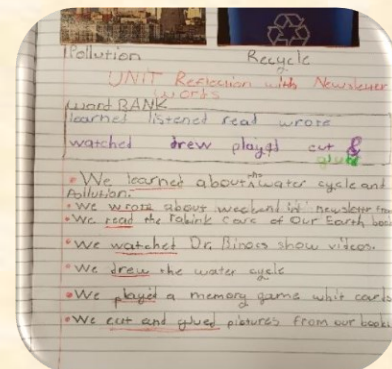 Pollution Recycle
UNIT Reflection with Newsletter
words
word BANK
learned listened read wrote
watched drew played cut &
glue
• We learned about the water cycle and
Pollution.
• We wrote about weekend in newsletter
• We read the Care of Our Earth
• We watched Dr. Binocs show videos.
• We drew the water cycle
• We played a memory game whit cards
• We cut and glued pictures from our books